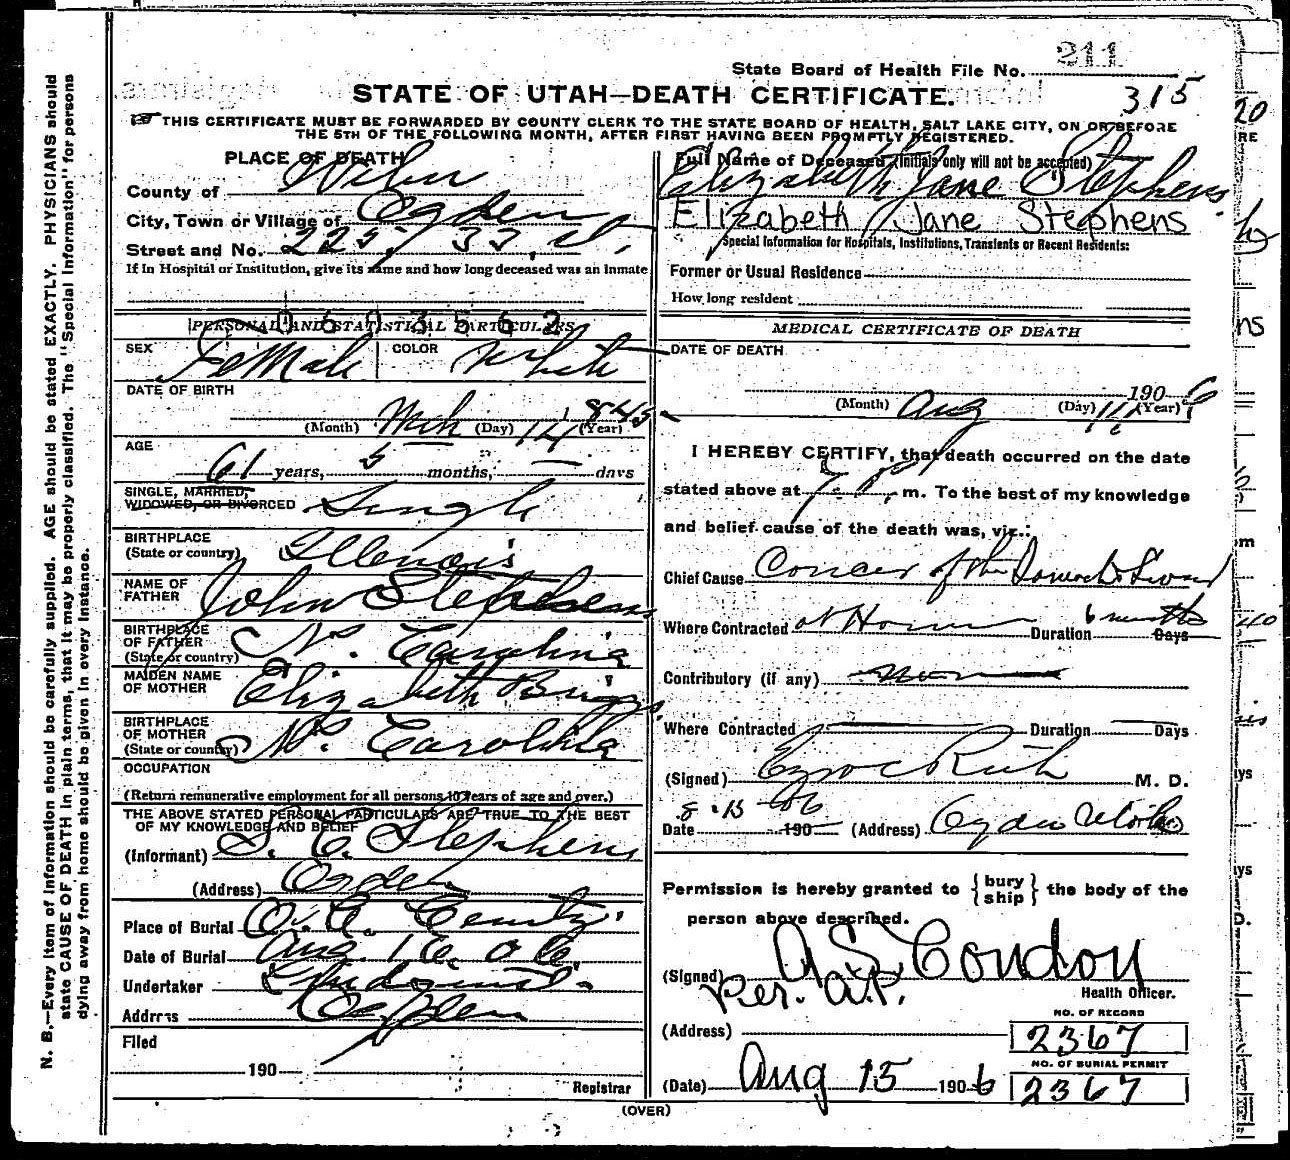 211
State Board of Health File No.
315
STATE OF UTAH—DEATH CERTIFICATE.
THIS CERTIFICATE MUST BE FORWARDED BY COUNTY CLERK TO THE STATE BOARD OF HEALTH, SALT LAKE CITY, ON OR BEFORE
THE 5TH OF THE FOLLOWING MONTH, AFTER FIRST HAVING BEEN PROMPTLY REGISTERED.
N. B.—Every item of information should be carefully supplied. AGE should be stated EXACTLY. PHYSICIANS should
state CAUSE OF DEATH in plain terms, that it may be properly classified. The "Special Information" for persons
dying away from home should be given in every instance.
PLACE OF DEATH
County of Weber
City, Town or Village of Ogden
Street and No. 225 33 st.
If in Hospital or Institution, give its name and how long deceased was an inmate
PERSONAL AND STATISTICAL PARTICULARS
SEX FeMale COLOR White
DATE OF BIRTH
(Month) Mch (Day) 14 (Year) 845
AGE
61 years, 5 months, — days
SINGLE, MARRIED,
WIDOWED, OR DIVORCED Single
BIRTHPLACE
(State or country) Illenois
NAME OF
FATHER John Stephens
BIRTHPLACE
OF FATHER
(State or country) N. Carolina
MAIDEN NAME
OF MOTHER Elizabeth Briggs
BIRTHPLACE
OF MOTHER
(State or country) N. Carolina
OCCUPATION
(Return remunerative employment for all persons 10 years of age and over.)
THE ABOVE STATED PERSONAL PARTICULARS ARE TRUE TO THE BEST
OF MY KNOWLEDGE AND BELIEF
(Informant) S. E. Stephens
(Address) Ogden
Place of Burial
Date of Burial Aug. 16. 06.
Undertaker Lindquist
Address Ogden
Filed
190
Registrar
Full Name of Deceased (Initials only will not be accepted)
Elizabeth Jane Stephens.
Elizabeth Jane Stephens
Special Information for Hospitals, Institutions, Transients or Recent Residents:
Former or Usual Residence
How long resident
MEDICAL CERTIFICATE OF DEATH
DATE OF DEATH
1906
(Month) Aug (Day) (Year)
I HEREBY CERTIFY, that death occurred on the date
stated above at 7. P. m. To the best of my knowledge
and belief cause of the death was, viz.:
Chief Cause Cancer of the Stomach & Liver
Where Contracted at Home Duration 6 months Days
Contributory (if any)
Where Contracted Duration Days
(Signed) Rich M. D.
Date 8-15-06 190 (Address) Ogden Utah
Permission is hereby granted to {bury ship} the body of the
person above described.
(Signed) A S Condon
Per. A.P. Health Officer.
NO. OF RECORD
(Address) 2367
NO. OF BURIAL PERMIT
(Date) Aug 15 1906 2367
(OVER)